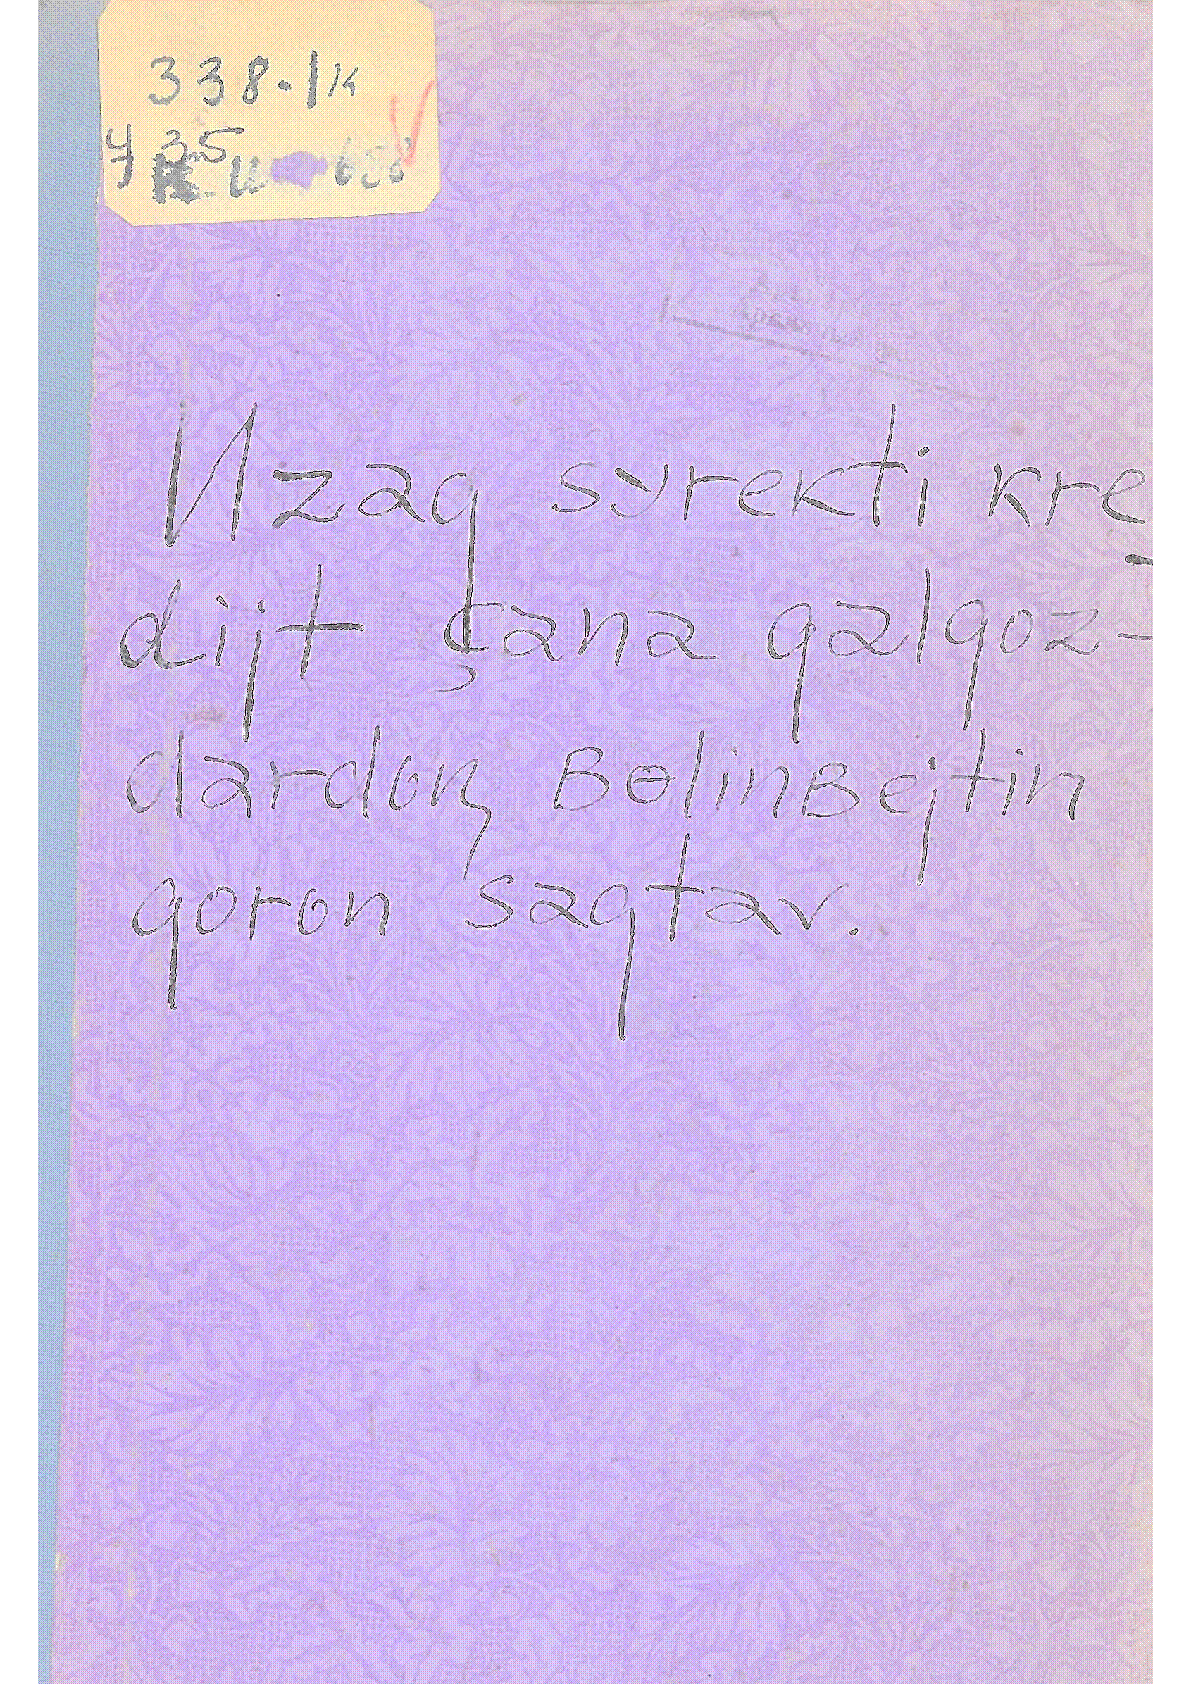 338.1к
У 35
Uzaq syrekti kre-
dijt çana qalqoz-
dardьņ вөlinвejtin
qorun saqtav.